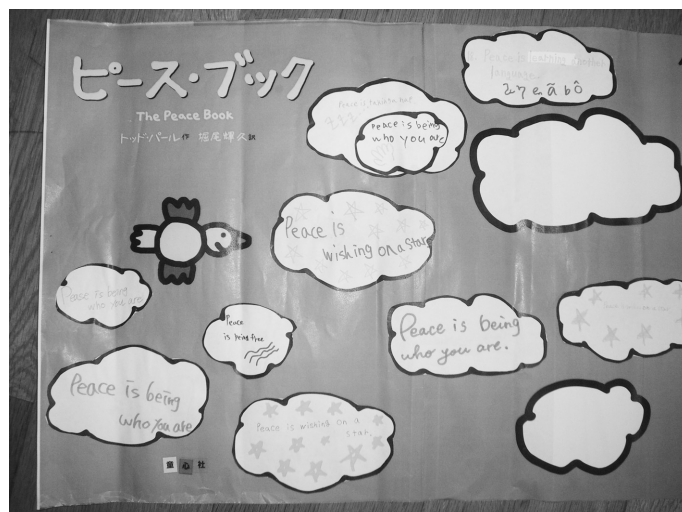 ピース・ブック
The Peace Book
トッド・パール作 堀尾輝久訳
Peace is learning another
language.
Peace is taking a nap.
ZZZ
Peace is being
who you are
Peace is
wishing on a star
Peace is being
who you are
Peace
is being free
Peace is being
who you are.
Peace is being
who you are
Peace is wishing on a
star.
童心社